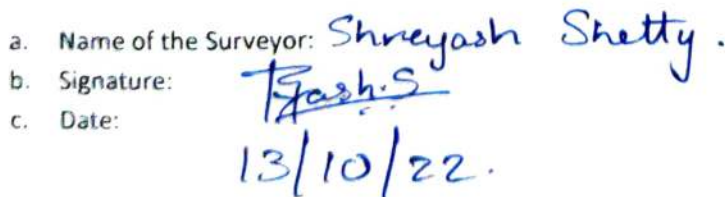 a. Name of the Surveyor: Shreyash Shetty.
b. Signature: Yash.S
c. Date:
13/10/22.